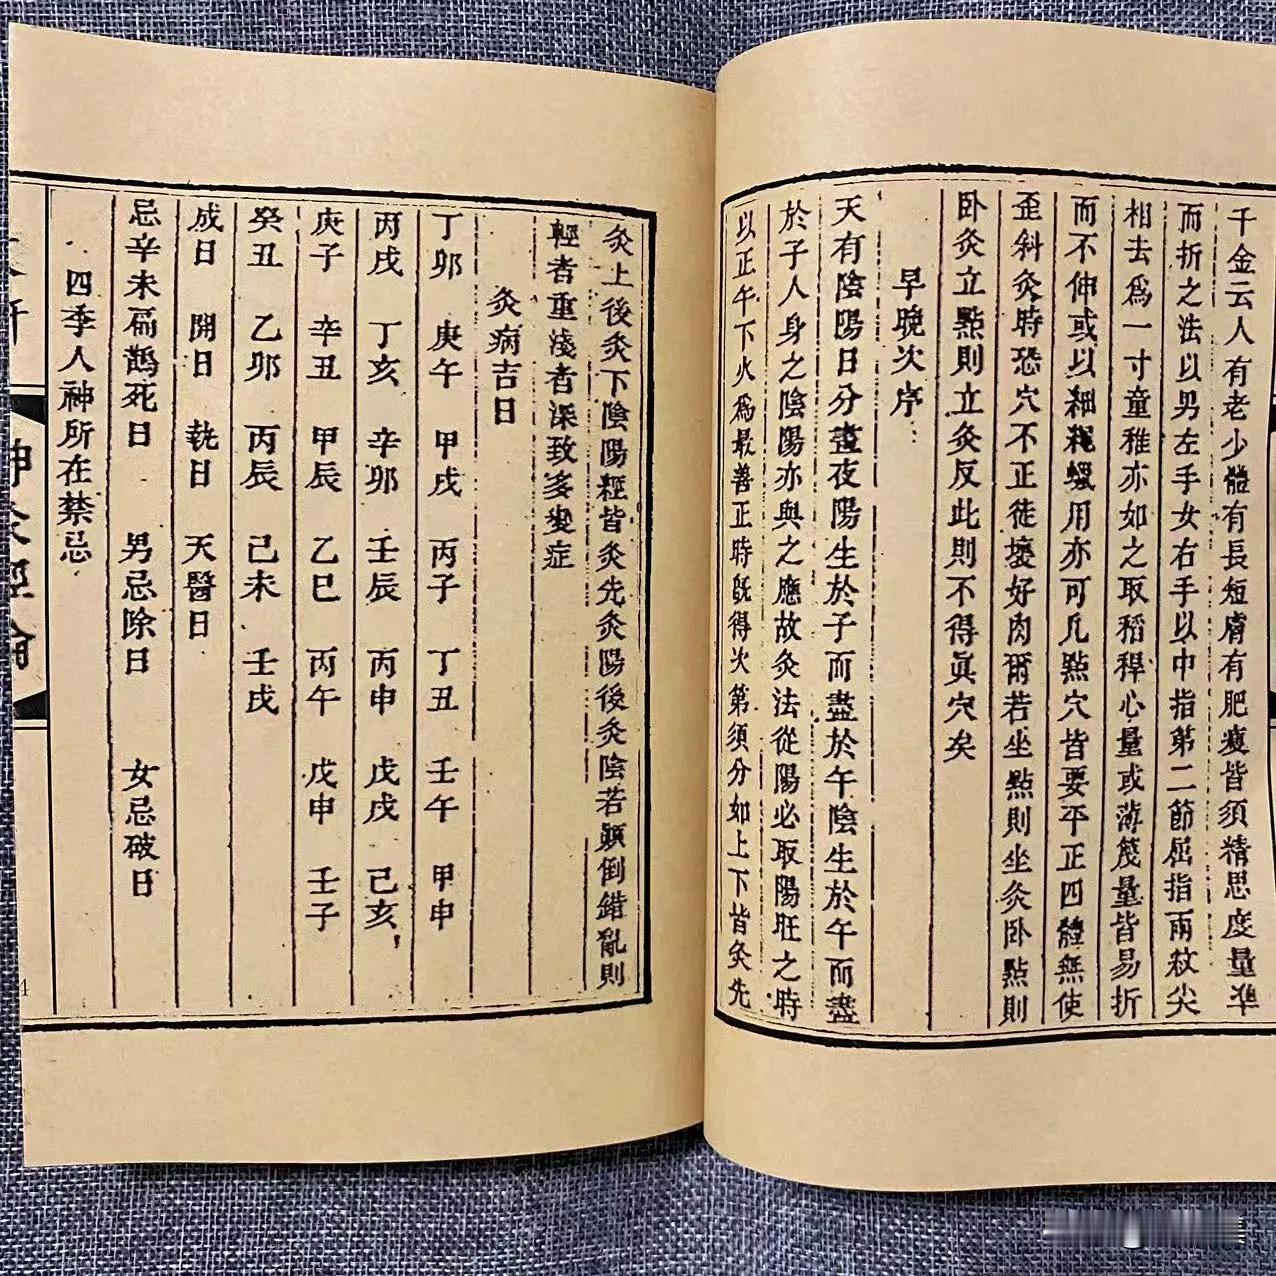 千金云人有老少體有長短膚有肥瘦皆須精思度量準
而折之法以男左手女右手以中指第二節屈指兩紋尖
相去爲一寸童稚亦如之取稻稈心量或薄篾量皆易折
而不伸或以細蠟用亦可凡點穴皆要平正四體無使
歪斜灸時恐穴不正徒壞好肉爾若坐點則坐灸卧點則
卧灸立點則立灸反此則不得眞穴矣
早晚次序
天有陰陽日分晝夜陽生於子而盡於午陰生於午而盡
於子人身之陰陽亦與之應故灸法從陽必取陽旺之時
以正午下火爲最善正時旣得次第須分如上下皆灸先
灸上後灸下陰陽經皆灸先灸陽後灸陰若顚倒錯亂則
輕者重淺者深致多變症
灸病吉日
丁卯 庚午 甲戌 丙子 丁丑 壬午 甲申
丙戌 丁亥 辛卯 壬辰 丙申 戊戌 己亥
庚子 辛丑 甲辰 乙巳 丙午 戊申 壬子
癸丑 乙卯 丙辰 己未 壬戌
成日 開日 執日 天醫日
忌辛未扁鵲死日 男忌除日 女忌破日
四季人神所在禁忌
神灸經綸
4